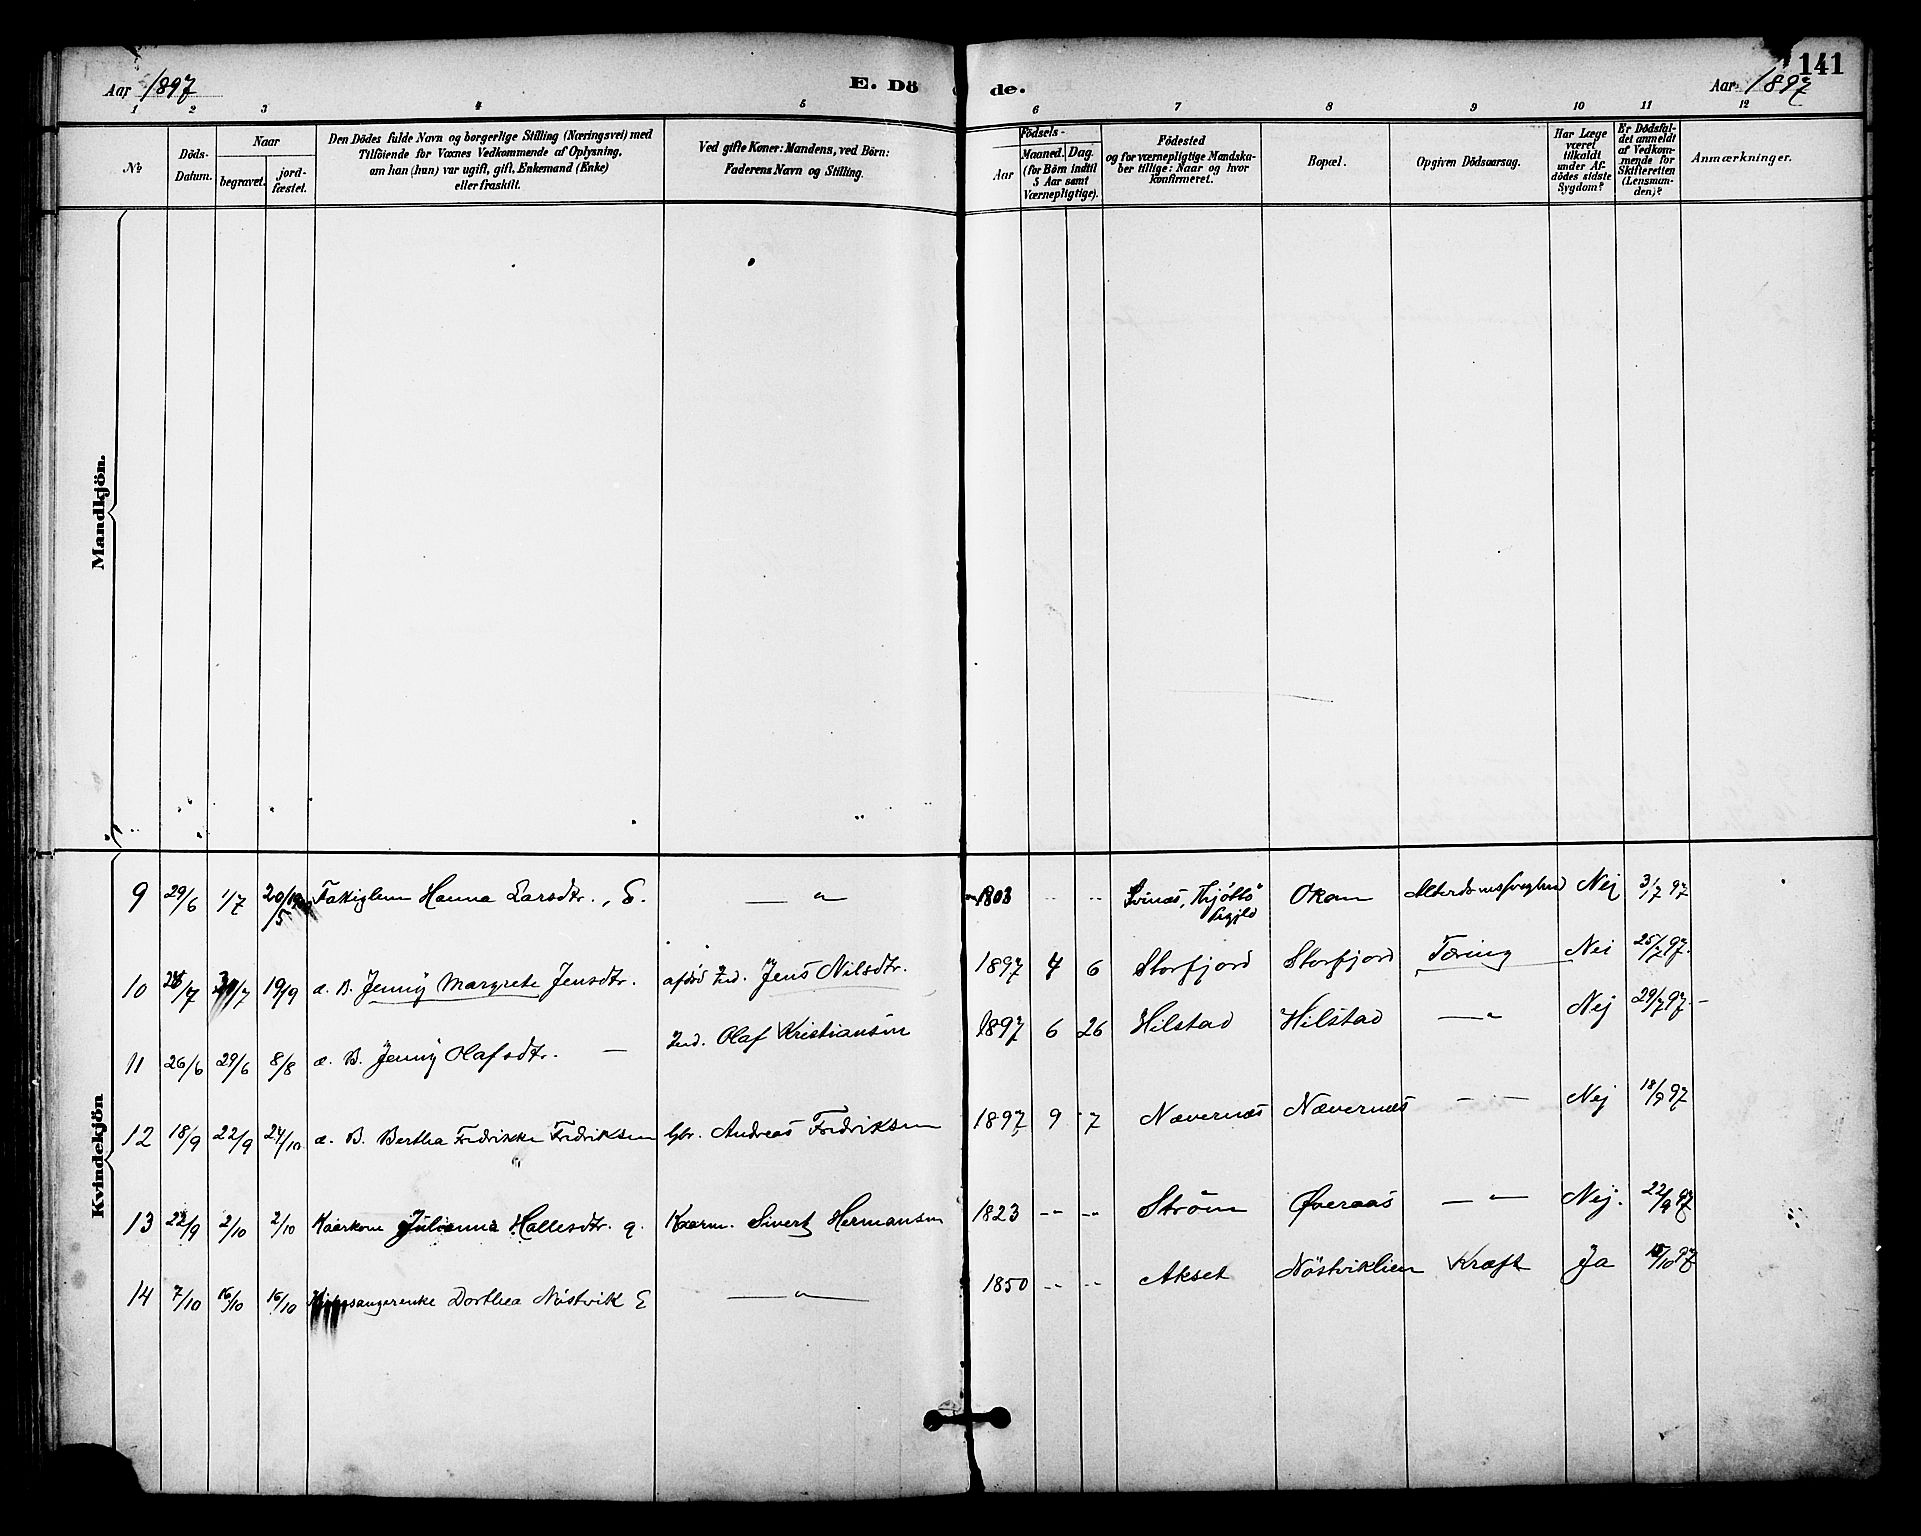 141
Aar 1897
E. Dö de.
Aar 1897
1 2 3 4 5 6 7 8 9 10 11 12
No
Döds-Datum.
Naar
begravet.
jord-fæstet.
Den Dödes fulde Navn og borgerlige Stilling (Næringsvei) med
Tilföiende for Voxnes Vedkommende af Oplysning,
om han (hun) var ugift, gift, Enkemand (Enke)
eller fraskilt.
Ved gifte Koner: Mandens, ved Börn:
Faderens Navn og Stilling.
Födsels-
Aar
Maaned. Dag.
(for Börn indtil
5 Aar samt
Værnepligtige).
Födested
og for værnepligtige Mandska-
ber tillige: Naar og hvor
konfirmeret.
Bopæl.
Opgiven Dödsaarsag.
Har Læge
været
tilkaldt
under Af-
dödes sidste
Sygdom?
Er Dödsfal-
det anmeldt
af Vedkom-
mende for
Skifteretten
(Lensman-
den)?
Anmærkninger.
Mandkjön.
Kvindekjön
9 29/6 1/7 Hanna Larsdtr., E. — " — 1803 " " Okan Nej 3/7 97
10 19/9 æ. B. Jenny Margrete Jensdtr. afdöd Ind. Jens Nilsdtr. 1897 4 6 Storfjord Storfjord Tæring Nei 25/7 97.
11 26/6 29/6 8/8 æ. B. Jenny Olafsdtr. — Ind. Olaf Kristiansen 1897 6 26 Hilstad Hilstad — " Nej 29/7 97. —
12 18/9 22/9 24/10 æ. B. Bertha Fredrikke Fredriksen Gbr. Andreas Fredriksen 1897 9 7 Nævernæs Nævernæs — — Nej 18/9 97
13 22/9 2/10 2/10 Kaarkone Julianna Hallesdtr. g. Kaarm. Sivert Hermansen 1823 " " Ström Øveraas — " — Nej. 22/9 97
14 7/10 16/10 16/10 Dorthea Nöstvik E — " — 1850 " " Akset Nöstviklien Kræft Ja 97